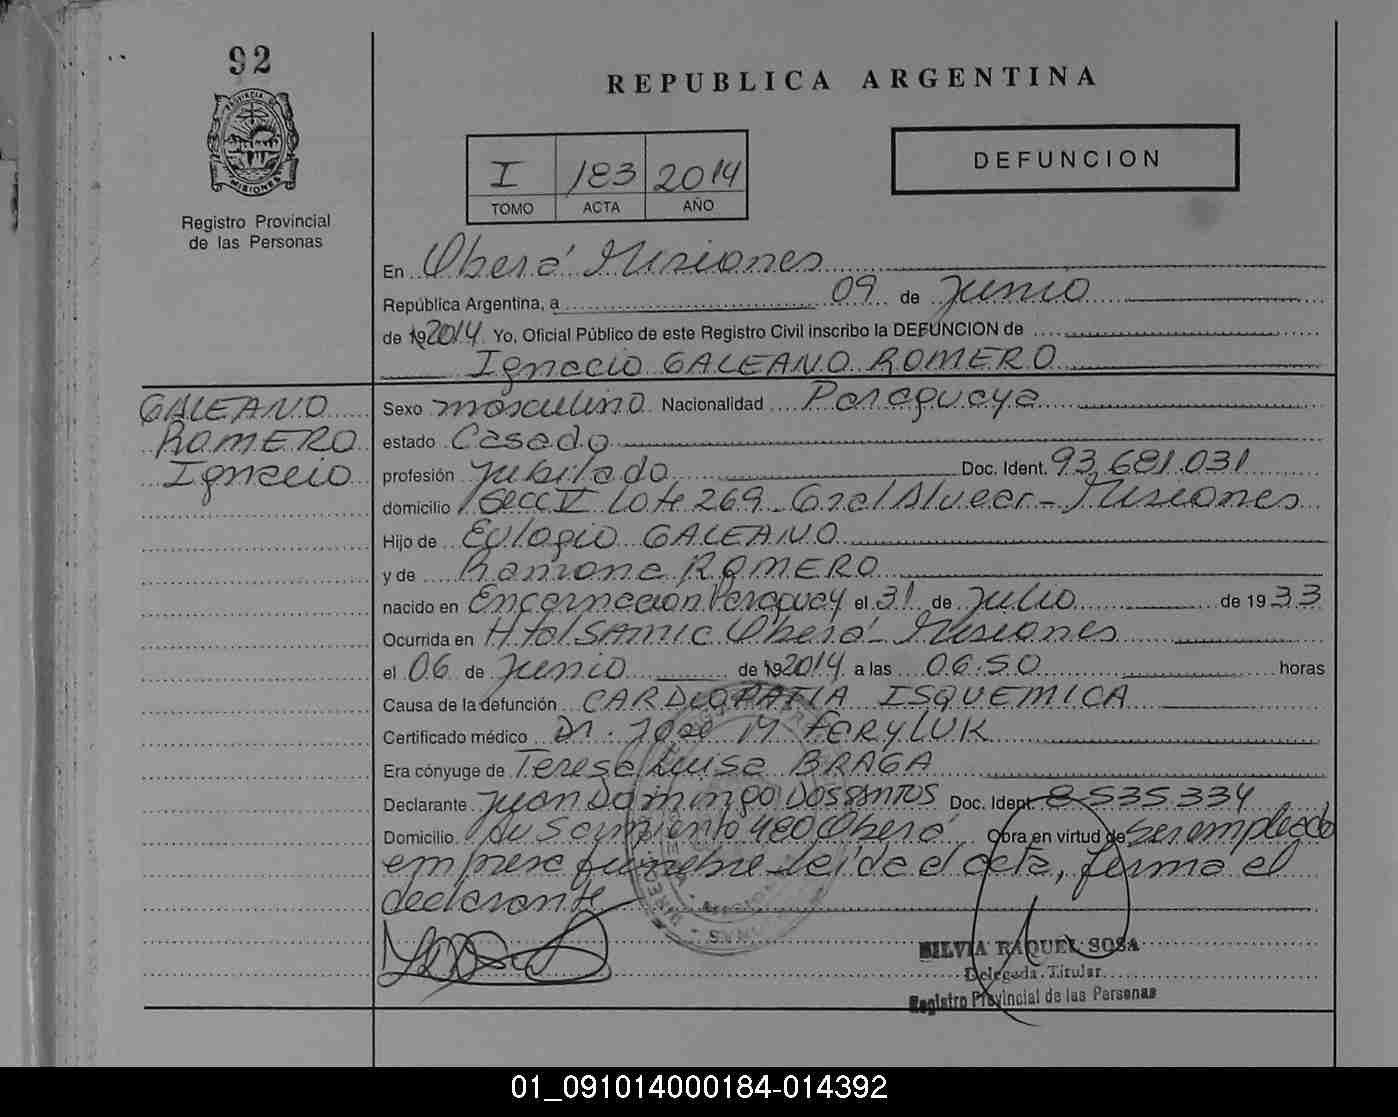 92
REPUBLICA ARGENTINA
PROVINCIA DE
MISIONES
Registro Provincial
de las Personas
I 183 2014
TOMO ACTA AÑO
DEFUNCION
En Oberá Misiones
República Argentina, a 09 de Junio
de 192014 Yo, Oficial Público de este Registro Civil inscribo la DEFUNCION de
Ignacio GALEANO ROMERO
GALEANO
ROMERO
Ignacio
Sexo masculino Nacionalidad Paraguaya
estado Casado
profesión Jubilado Doc. Ident. 93,681.031
domicilio Secc V Lote 269 - Gral Alvear - Misiones
Hijo de Eulogio GALEANO
y de Ramona ROMERO
nacido en Encarnacion Paraguay el 31 de Julio de 1933
Ocurrida en Htal SAMIC Oberá - Misiones
el 06 de Junio de 192014 a las 06:50 horas
Causa de la defunción CARDIOPATIA ISQUEMICA
Certificado médico Dr. Jose M FERYLUK
Era cónyuge de Teresa Luisa BRAGA
Declarante Juan Domingo DOSSANTOS Doc. Ident. 8535334
Domicilio Av Sarmiento 480 Oberá Obra en virtud de ser empleado
empresa funebre leida el acta, firma el
declarante
SILVIA RAQUEL SOSA
Delegada Titular
Registro Provincial de las Personas
01_091014000184-014392